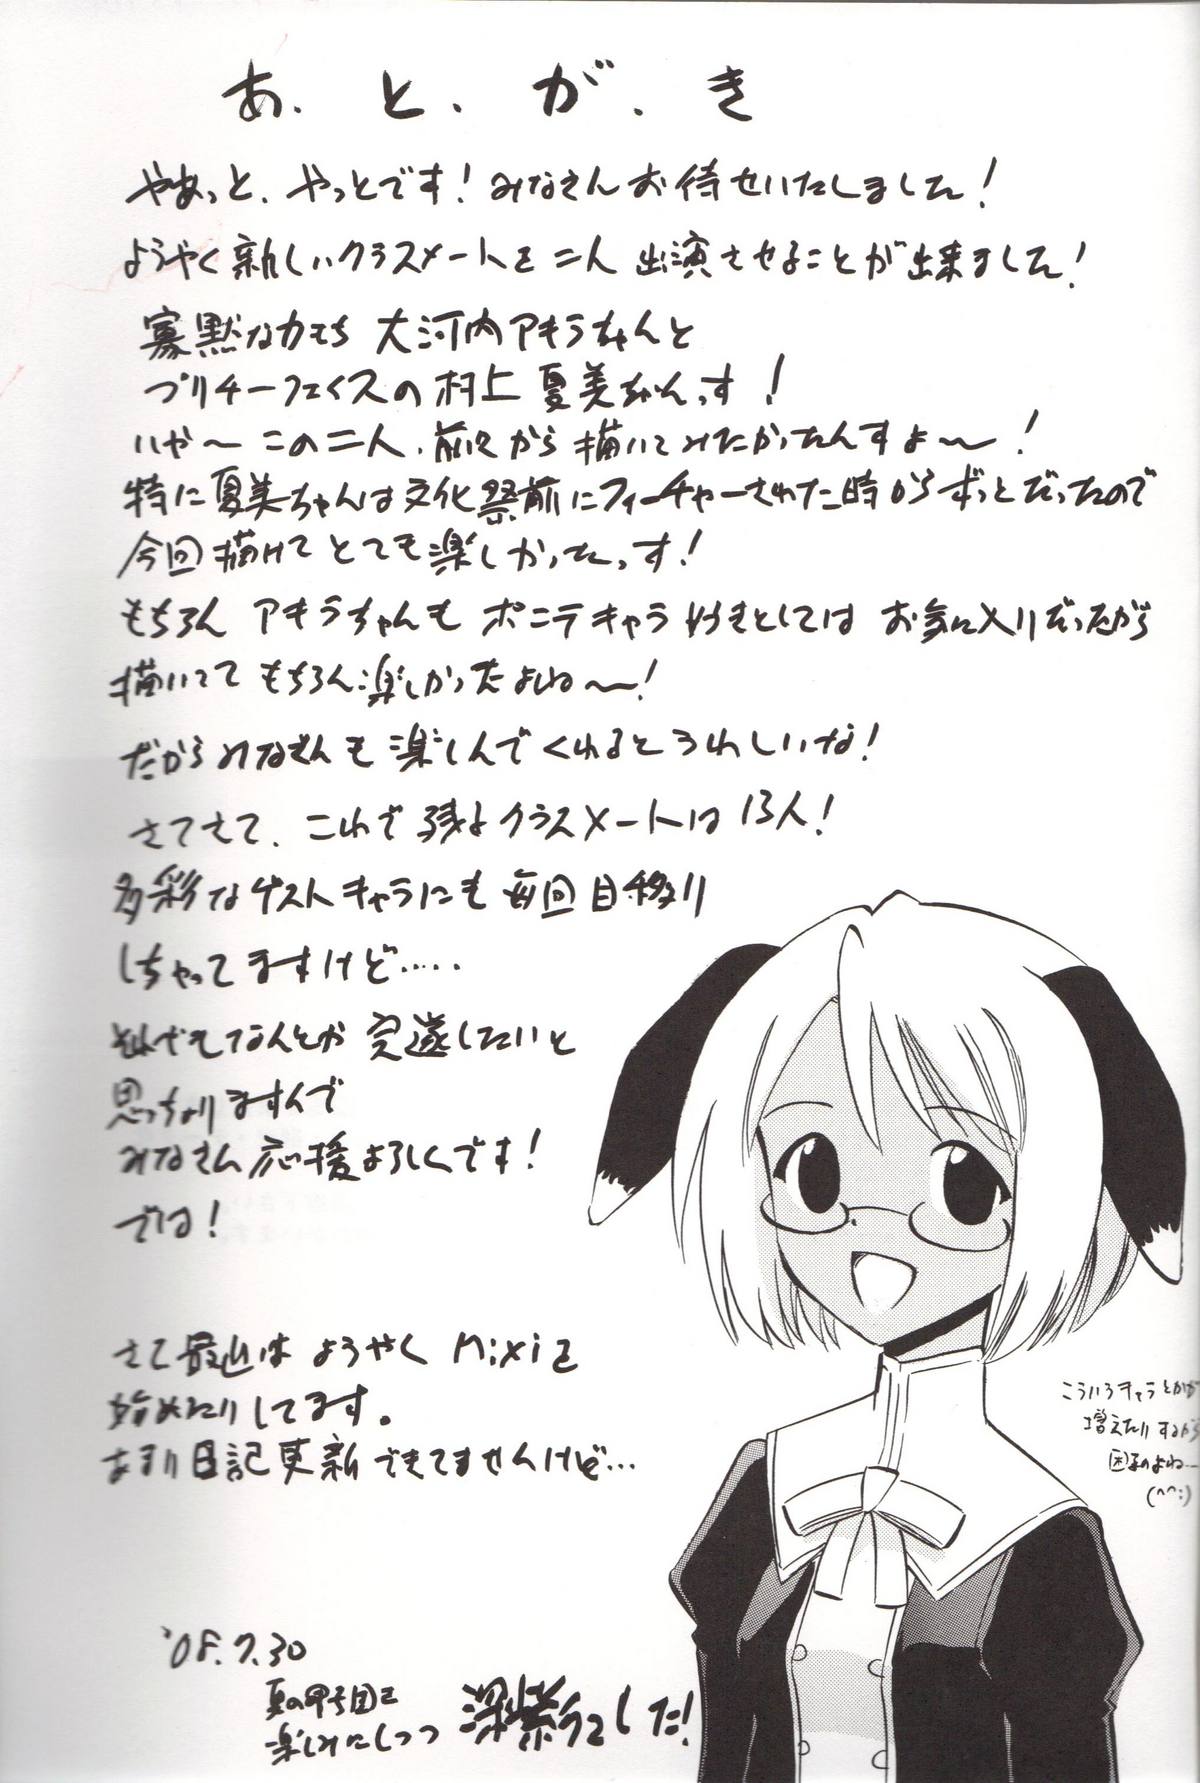 あ、と、が、き
やあっと、やっとです！みなさんお待せいたしました！
ようやく新しいクラスメートを二人 出演させることが出来ました！
寡黙な力もち 大河内アキラちゃんと
プリチーフェイスの村上 夏美ちゃんっす！
いや〜 この二人、前々から描いてみたかったんすよ〜！
特に夏美ちゃんは文化祭前にフィーチャーされた時からずっとだったので
今回描けて とても楽しかったっす！
もちろん アキラちゃんも ポニテキャラ好きとしては お気に入りだったから
描いてて もちろん楽しかったよね〜！
だからみなさんも楽しんでくれるとうれしいな！
さてさて、これで残るクラスメートは13人！
多彩なゲストキャラにも毎回目移り
しちゃってますけど‥‥‥
それでもなんとか 完遂したいと
思っちょりますんで
みなさん応援よろしくです！
では！
さて最近は ようやく mixiを
始めたりしてます。
あまり日記更新できてませんけど…
こういうキャラとかが
増えたりするから
困るのよね…
(^^;)
'08.7.30
夏の甲子園を
楽しみにしつつ 深紫でした！